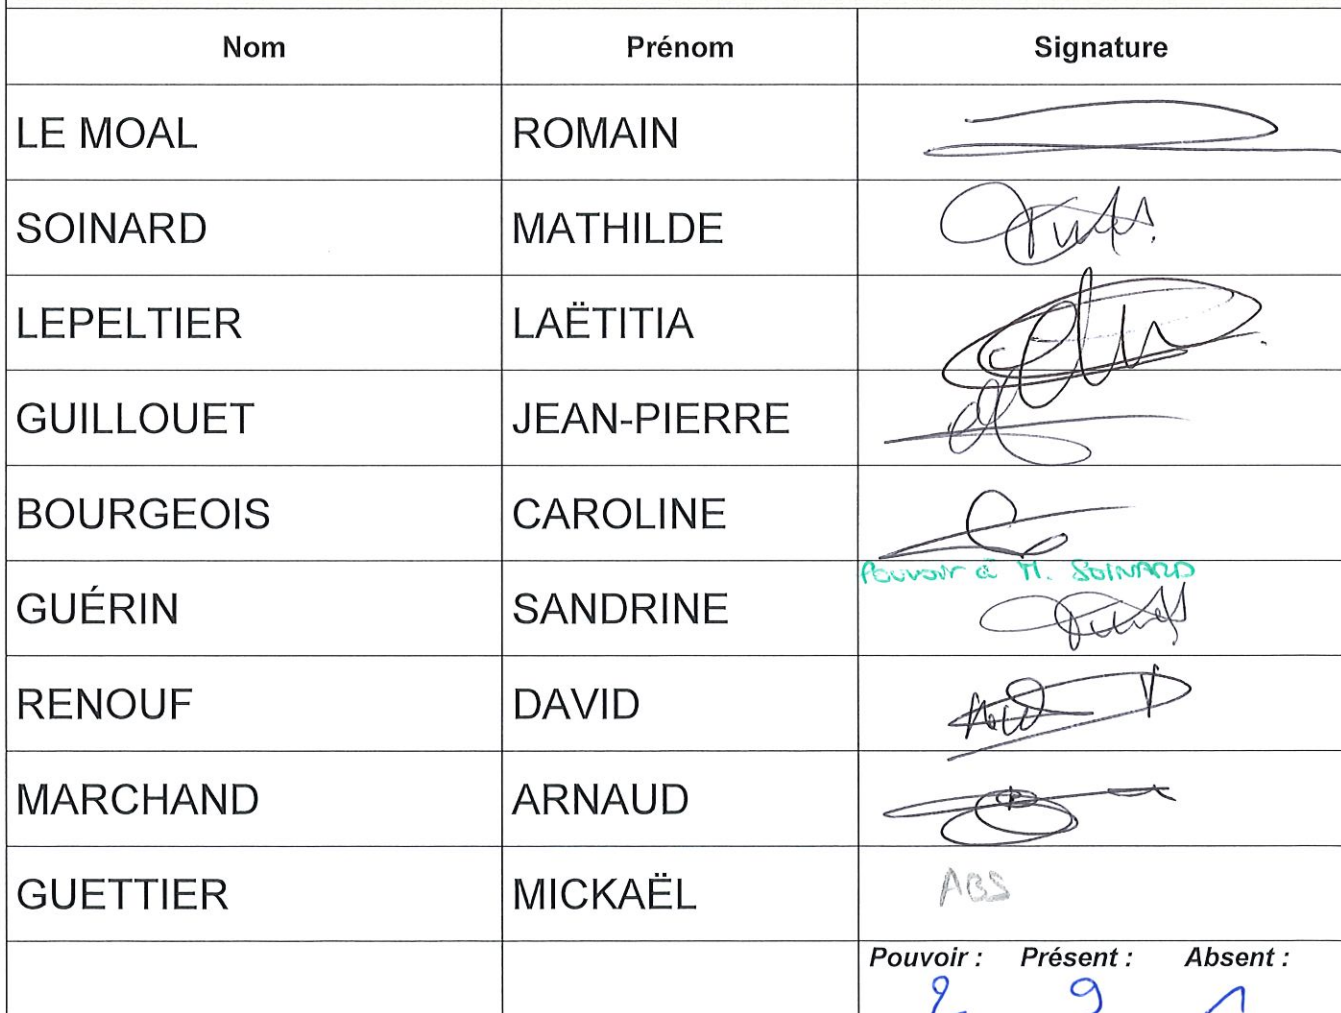 Nom Prénom Signature
LE MOAL ROMAIN
SOINARD MATHILDE
LEPELTIER LAËTITIA
GUILLOUET JEAN-PIERRE
BOURGEOIS CAROLINE
Pouvoir à M. SOINARD
GUÉRIN SANDRINE
RENOUF DAVID
MARCHAND ARNAUD
GUETTIER MICKAËL ABS
Pouvoir : Présent : Absent :
2 9 1